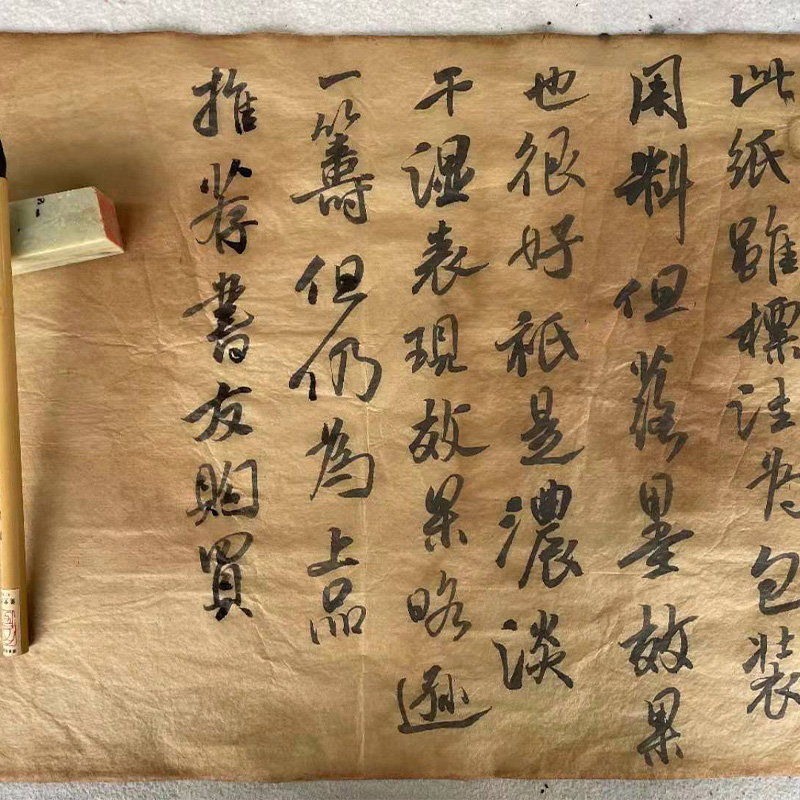 此紙雖標注為包裝
用料但落墨效果
也很好祇是濃淡
干湿表現效果略遜
一籌但仍為上品
推荐書友購買